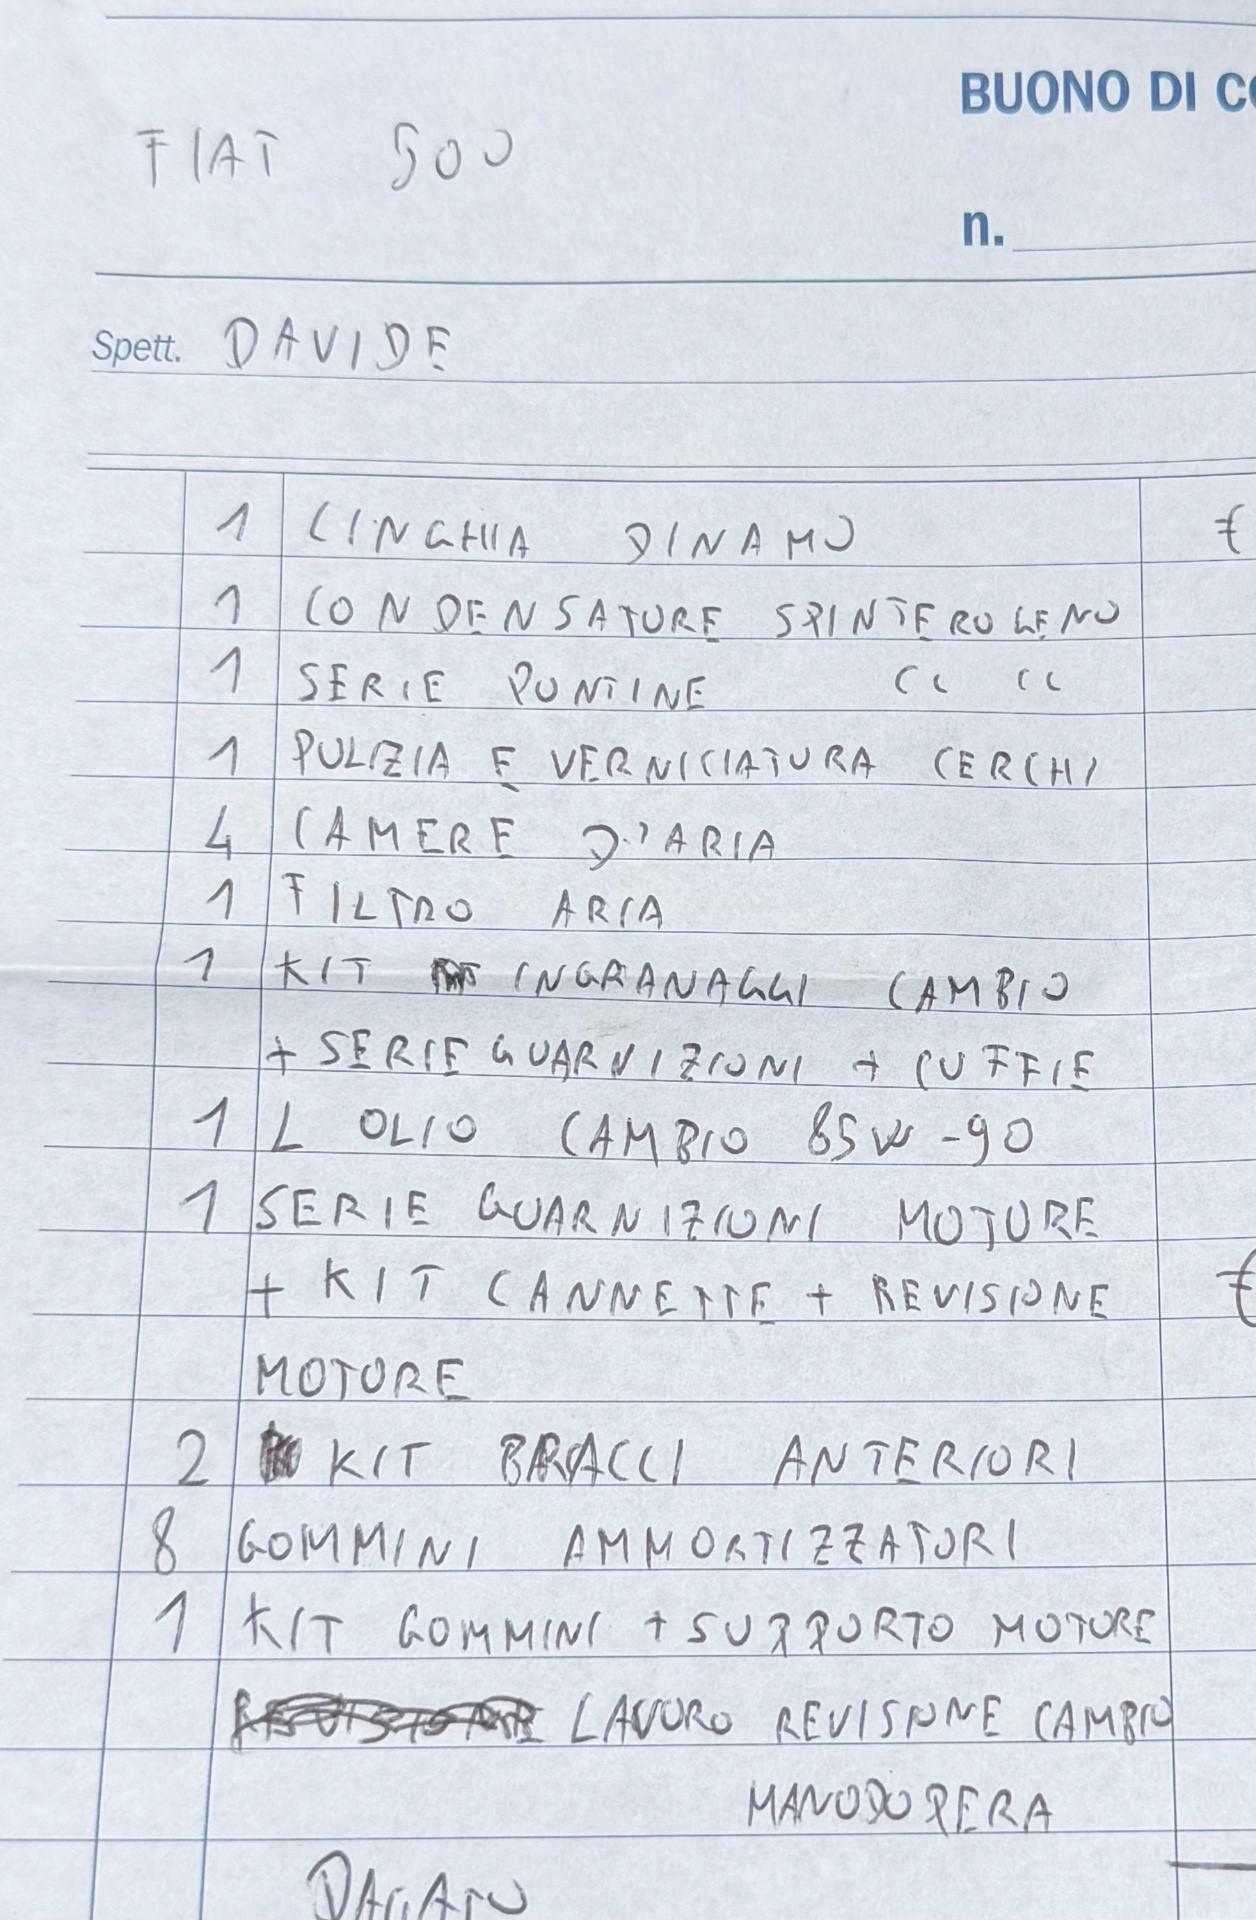 BUONO DI CO
FIAT 500
n.
Spett. DAVIDE
1 CINGHIA DINAMO €
1 CONDENSATORE SPINTEROGENO
1 SERIE PUNTINE " "
1 PULIZIA E VERNICIATURA CERCHI
4 CAMERE D'ARIA
1 FILTRO ARIA
1 KIT INGRANAGGI CAMBIO
+ SERIE GUARNIZIONI + CUFFIE
1 L OLIO CAMBIO 85W-90
1 SERIE GUARNIZIONI MOTORE
+ KIT CANNETTE + REVISIONE €
MOTORE
2 KIT BRACCI ANTERIORI
8 GOMMINI AMMORTIZZATORI
1 KIT GOMMINI + SUPPORTO MOTORE
LAVORO REVISIONE CAMBIO
MANODOPERA
PAGATO